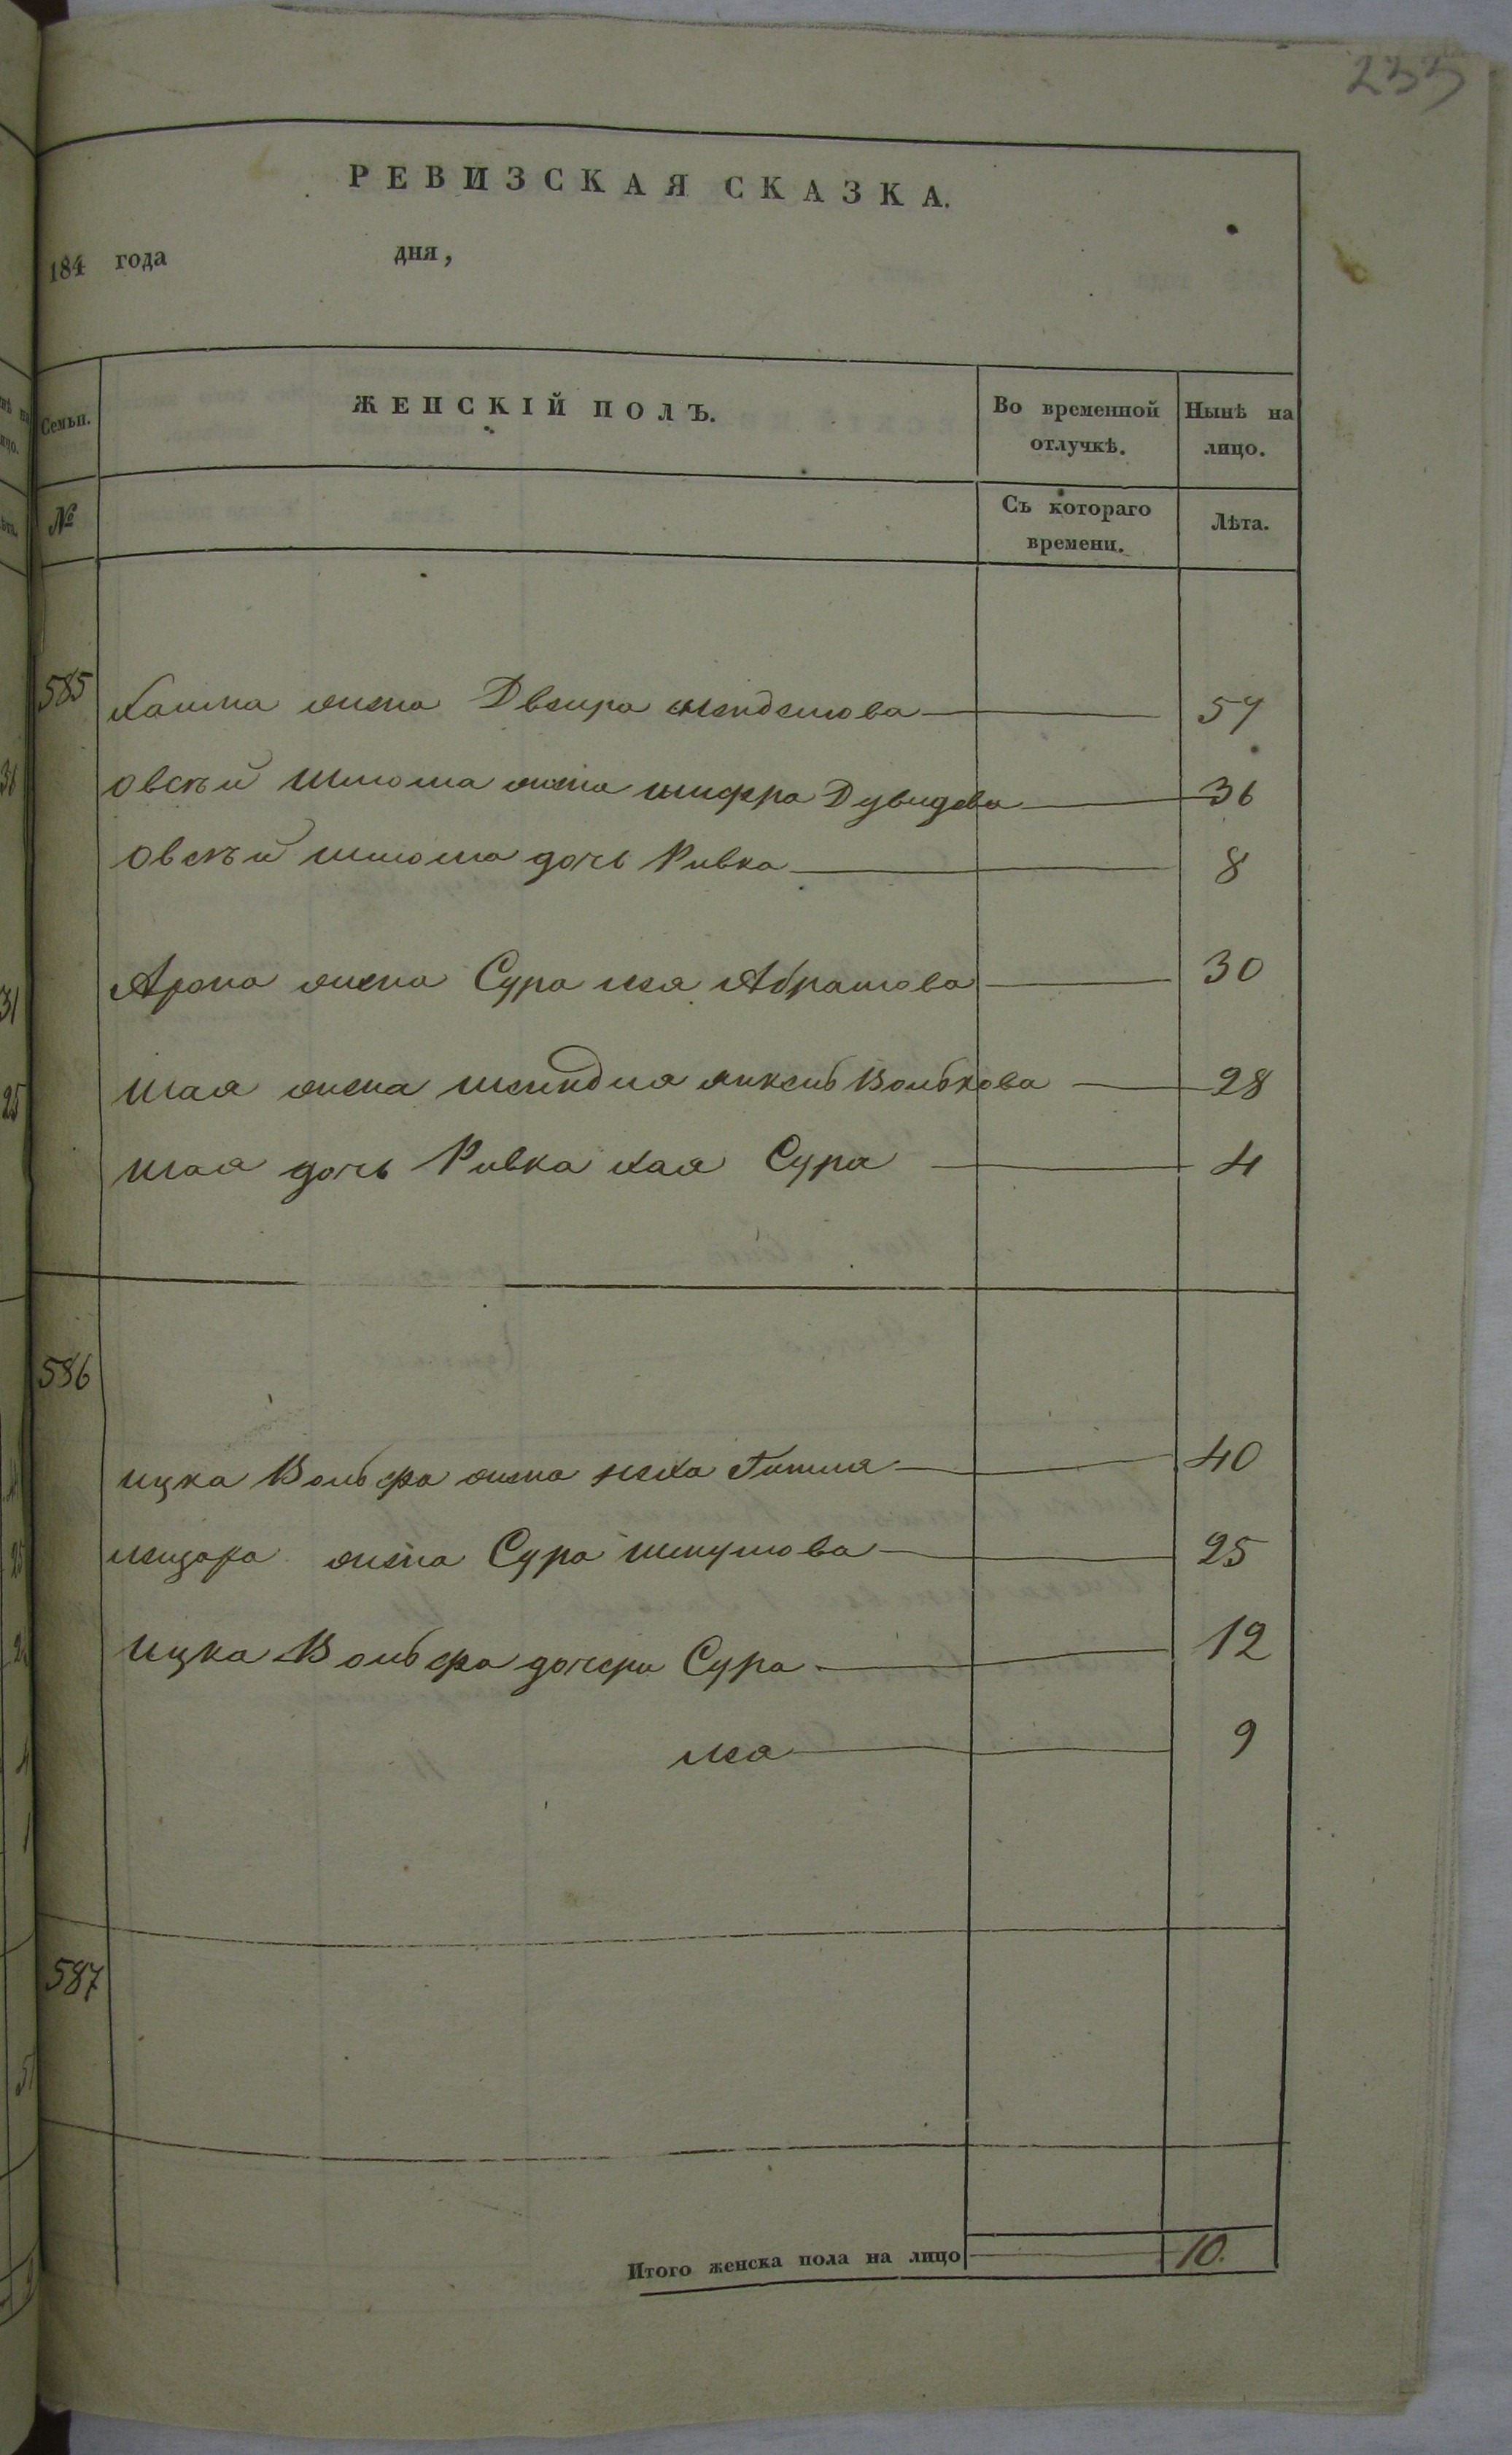 233
РЕВИЗСКАЯ СКАЗКА.
184 года дня,
Семьи. ЖЕНСКІЙ ПОЛЪ. Во временной отлучкѣ. Нынѣ на лицо.
№ Съ котораго времени. Лѣта.
585 Хаима жена Двейра 57
овсѣй Шлiома жена шифра Дувидова 36
овсѣй шлiома дочь Ривка 8
Арона жена Сура лея Абрамова 30
шая жена шейндля Волькова 28
шая дочь Ривка хая Сура 4
586
ицка Вольфа жена неха Гитля 40
лейзара жена Сура шмулова 25
ицка Вольфа дочери Сура 12
лея 9
587
Итого женска пола на лицо 10.